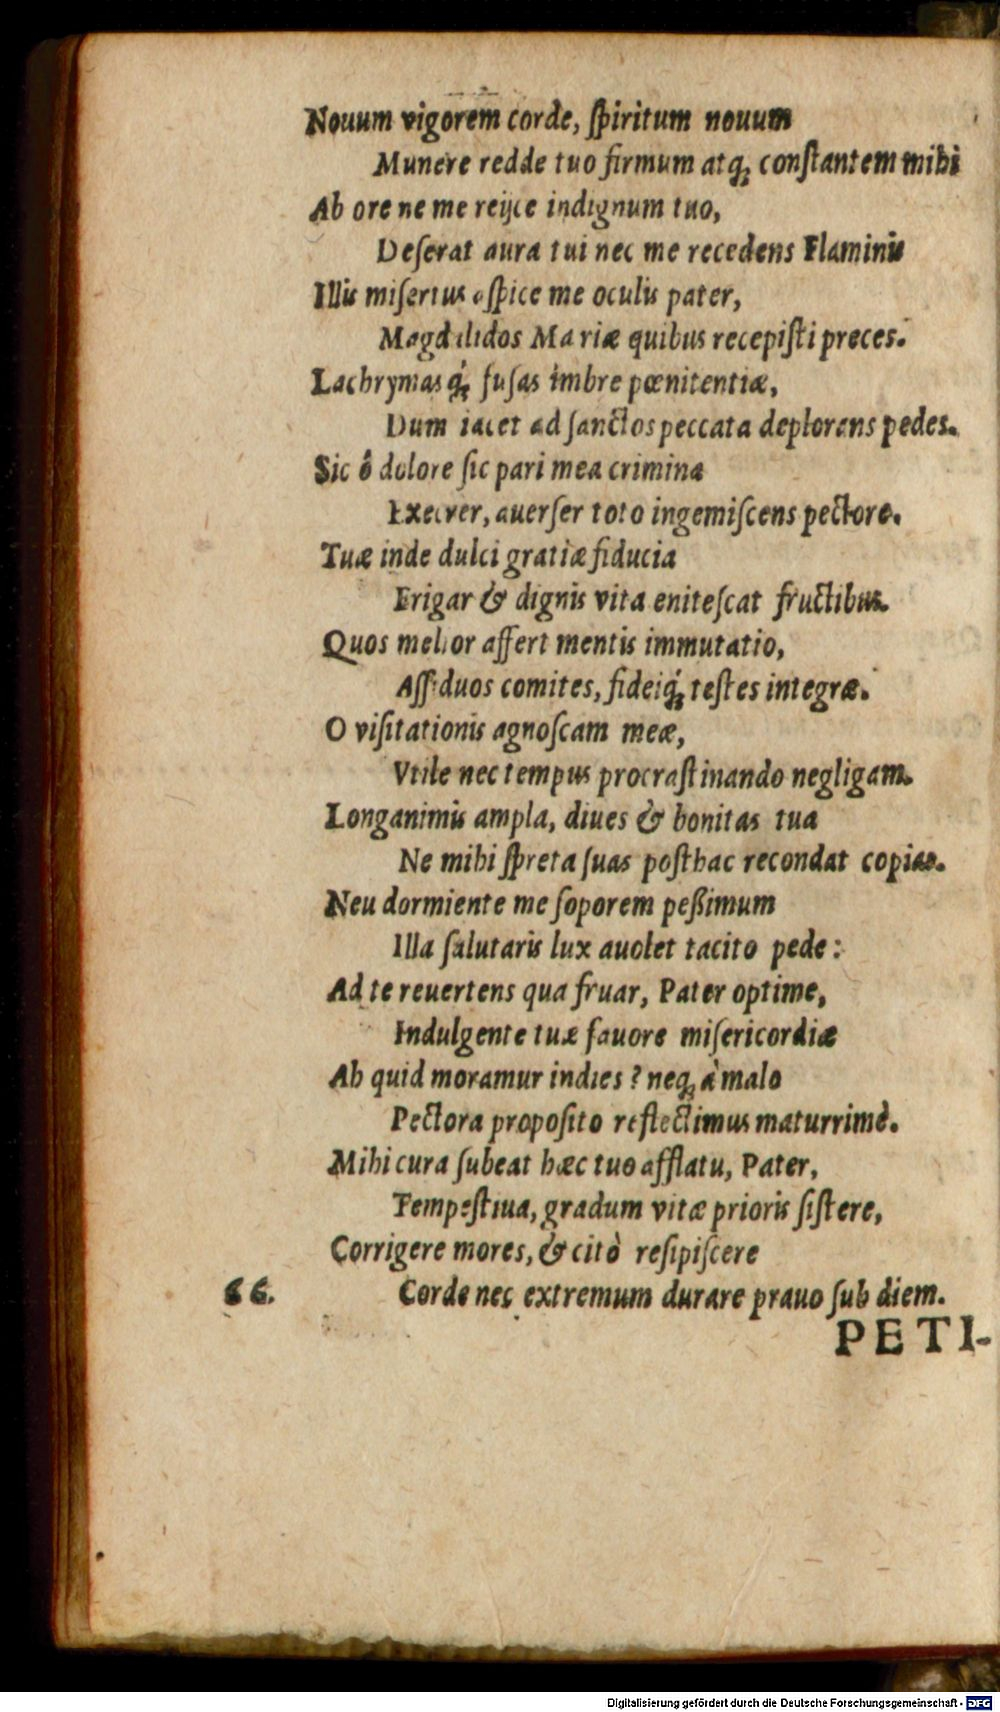 Nouum vigorem corde, ſpiritum nouum
Munere redde tuo firmum atq; conſtantem mihi
Ab ore ne me reijce indignum tuo,
Deſerat aura tui nec me recedens Flaminis
Illis miſertus aſpice me oculis pater,
Magdalidos Mariæ quibus recepiſti preces.
Lachrymasq́; fuſas imbre pœnitentiæ,
Dum iacet ad ſanctos peccata deplorans pedes.
Sic ô dolore ſic pari mea crimina
Execrer, auerſer toto ingemiſcens pectore.
Tuæ inde dulci gratiæ fiducia
Erigar & dignis vita eniteſcat fructibus.
Quos melior affert mentis immutatio,
Aſſiduos comites, fideiq́; teſtes integræ.
O viſitationis agnoſcam meæ,
Vtile nec tempus procraſtinando negligam.
Longanimis ampla, diues & bonitas tua
Ne mihi ſpreta ſuas poſthac recondat copias.
Neu dormiente me ſoporem peßimum
Illa ſalutaris lux auolet tacito pede:
Ad te reuertens qua fruar, Pater optime,
Indulgente tuæ fauore miſericordiæ
Ah quid moramur indies? neq; à malo
Pectora propoſito reflectimus maturrimè.
Mihi cura ſubeat hæc tuo afflatu, Pater,
Tempeſtiua, gradum vitæ prioris ſiſtere,
Corrigere mores, & citò reſipiſcere
66. Corde nec extremum durare prauo ſub diem.
PETI-
Digitalisierung gefördert durch die Deutsche Forschungsgemeinschaft - DFG